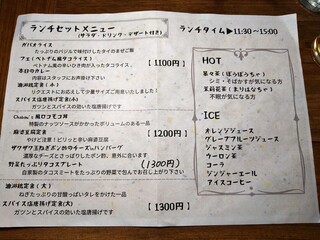 ランチセットメニュー
(サラダ・ドリンク・デザート付き)
ランチタイム▶11:30～15:00
ガパオライス
たっぷりのバジルで味付けしたタイのまぜご飯
ベトナム風の辛いひき肉が入ったタコライス
【1100円】
本日のカレー
内容はスタッフにお声掛け下さい
油淋鶏定食(小)
リクエストにお応えして少量サイズご用意いたしました!
スパイス唐揚げ定食(小)
ガツンとスパイスの効いた塩唐揚げです
Chakai's 麻ロコモコ丼
特製のナッツソースがかかったボリュームのある一品
麻婆豆腐定食
【1200円】
やけど注意!ピリッと辛い麻婆豆腐
ザクザク玉ねぎポン酢のチーズinハンバーグ
濃厚なチーズとさっぱりしたポン酢、意外に合います
野菜たっぷりタコスプレート
(1300円)
自家製のタコスミートをたっぷりの野菜で包んでお召し上がり下さい
油淋鶏定食(大)
ねぎたっぷりの甘酸っぱいタレをかけた一品
スパイス唐揚げ定食(大)
【1300円】
ガツンとスパイスの効いた塩唐揚げです
HOT
菊々茶(ぼうぼうちゃ)
シミ・そばかすが気になる方
茉莉花茶(まりはなちゃ)
不眠が気になる方
ICE
オレンジジュース
グレープフルーツジュース
ジャスミン茶
ウーロン茶
コーラ
ジンジャーエール
アイスコーヒー